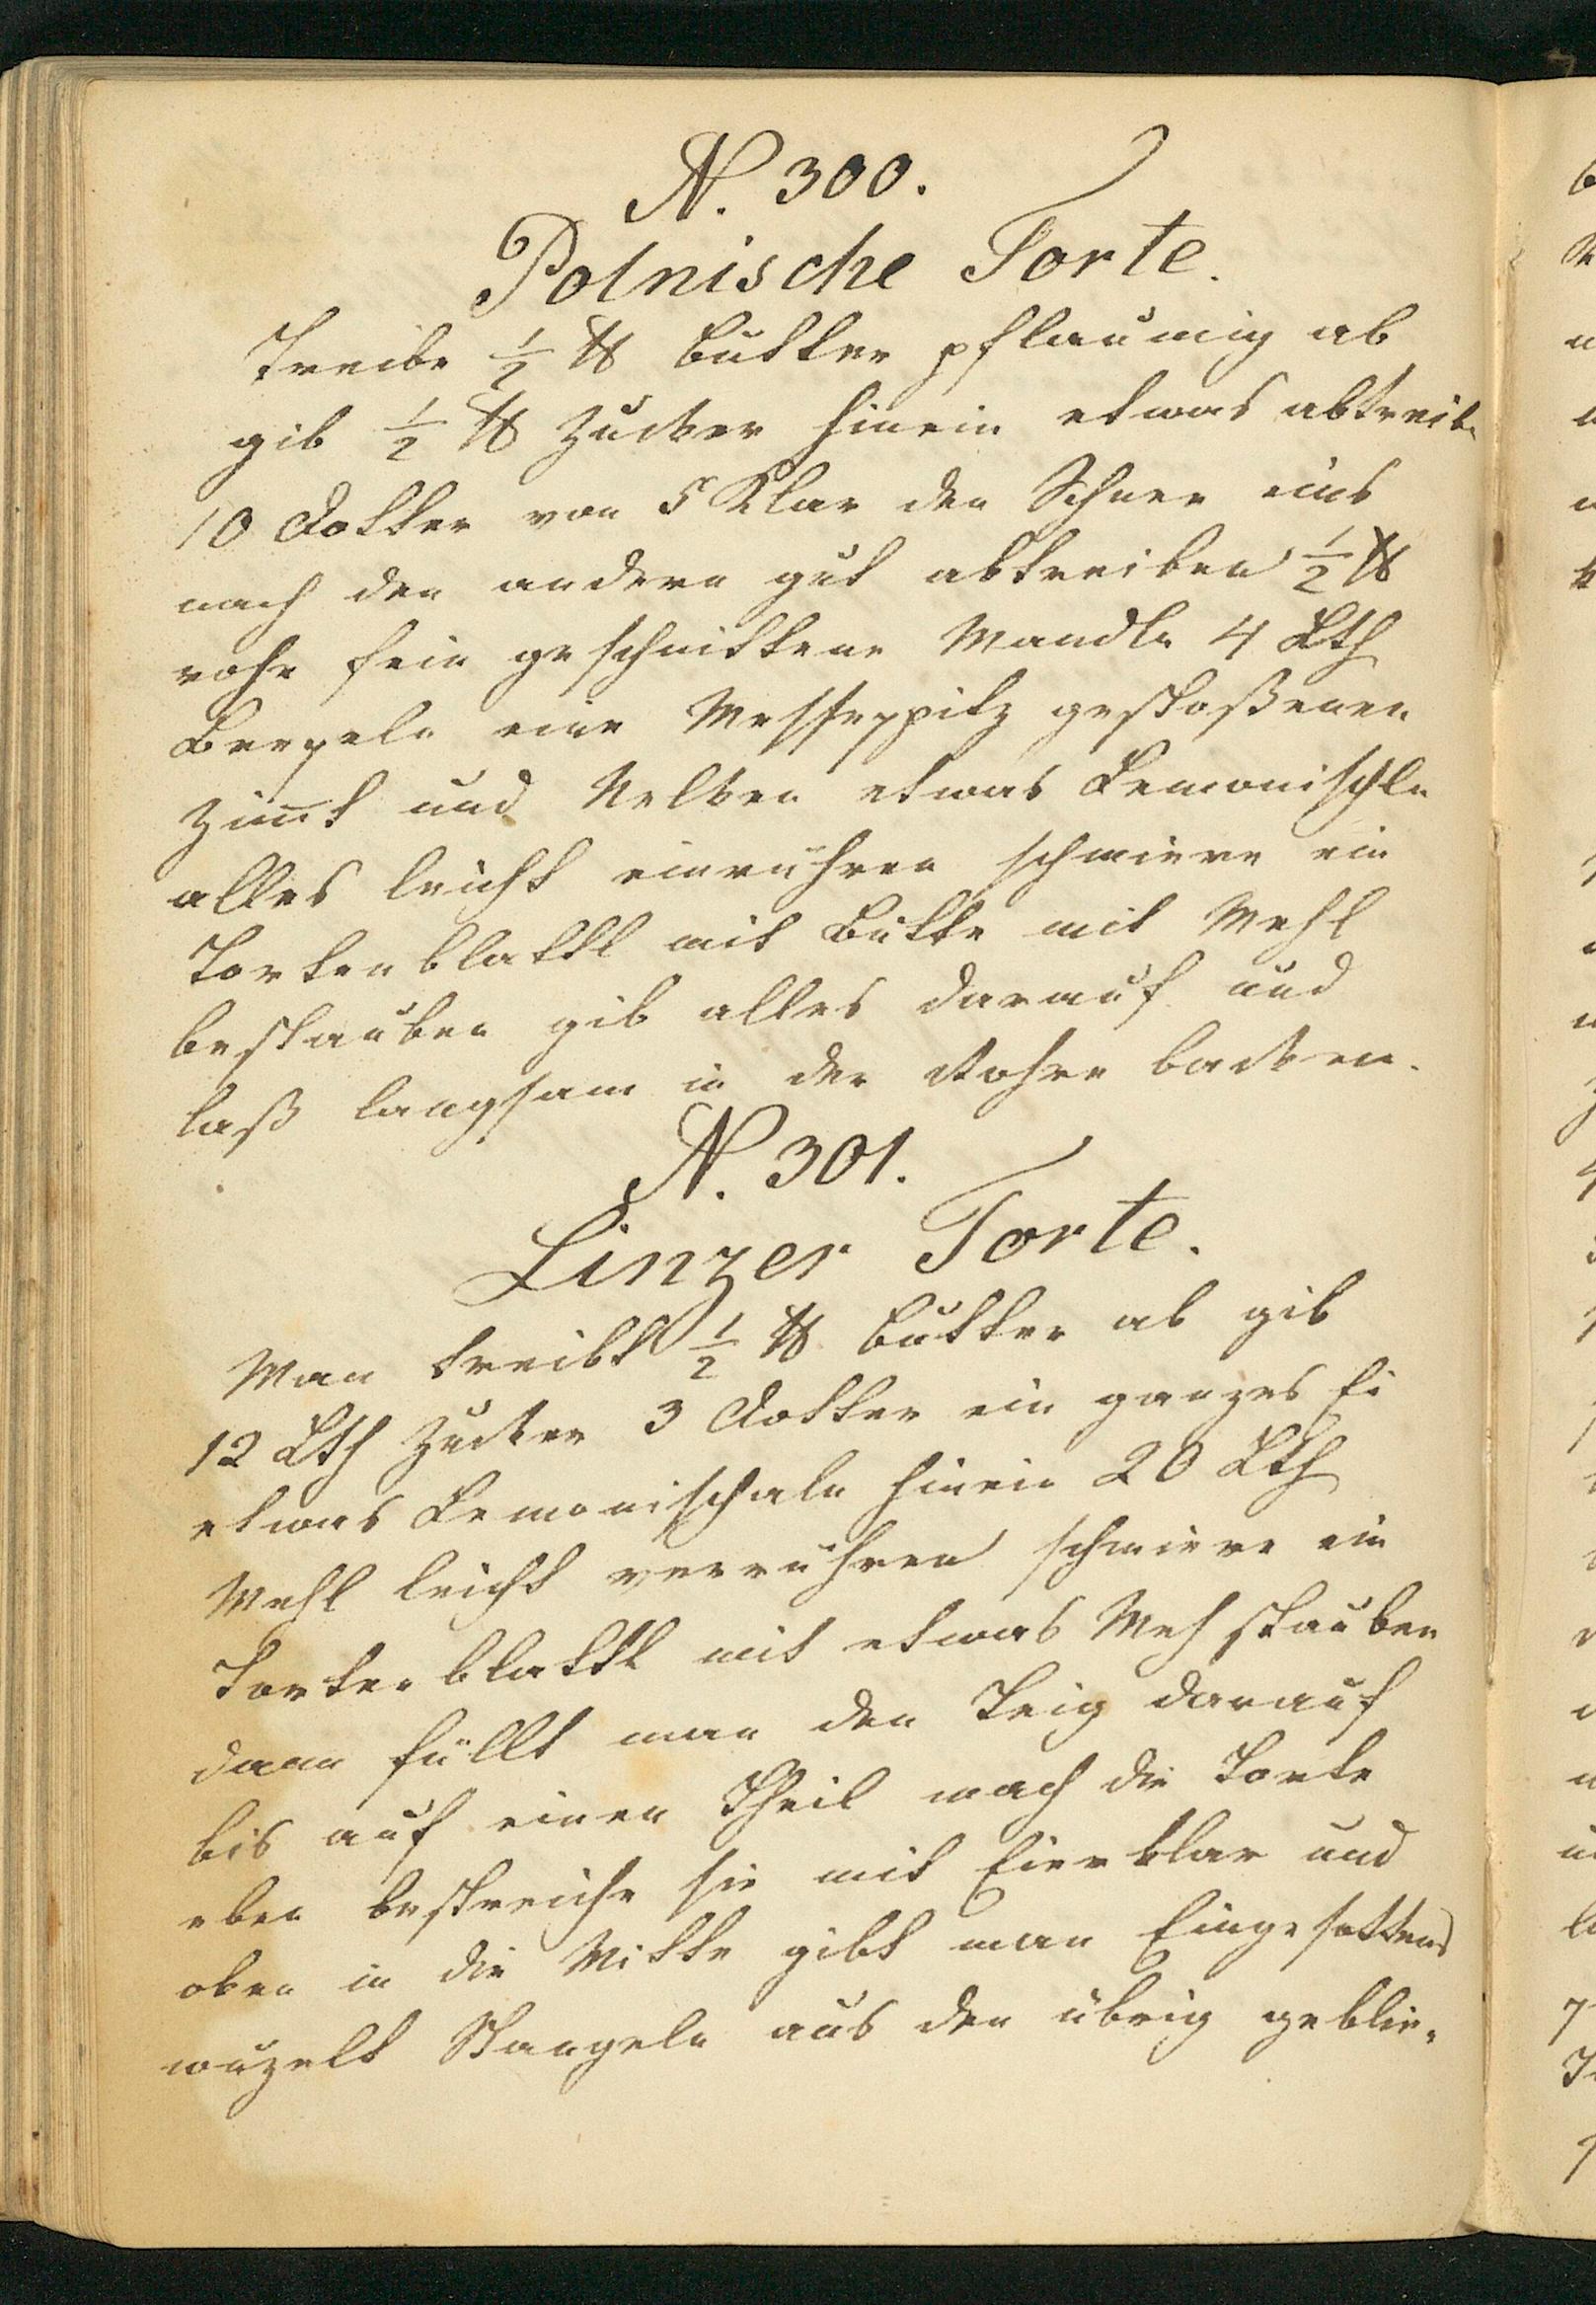 N. 300.
Polnische Torte.
Treibe ½ ℔ Butter pflaumig ab
gib ½ ℔ Zucker hinein etwas abtreibe
10 Dotter von 5 Klar den Schnee eins
nach den andern gut abtreiben ½ ℔
rohe fein geschnittene Mandle 4 Lth
Breseln eine Messerspitz gestoßenen
Zimt und Nelken etwas Lemonischln
alles leicht einrühren schmiere ein
Tortenblattl mit Butte mit Mehl
bestauben gib alles darauf und
laß langsam in der Rohre backen.
N. 301.
Linzer Torte.
Man treibt ½ ℔ Butter ab gib
12 Lth Zucker 3 Dotter ein ganzes Ei
etwas Lemonischale hinein 20 Lth
Mehl leicht verrühren schmiere ein
Tortenblattl mit etwas Meh stauben
dann füllt man den Teig darauf
bis auf einen Theil mach die Torte
eben bestreiche sie mit Eierklar und
oben in die Mitte gibt man Eingesottens
wuzelt Stangeln aus den übrig geblie-